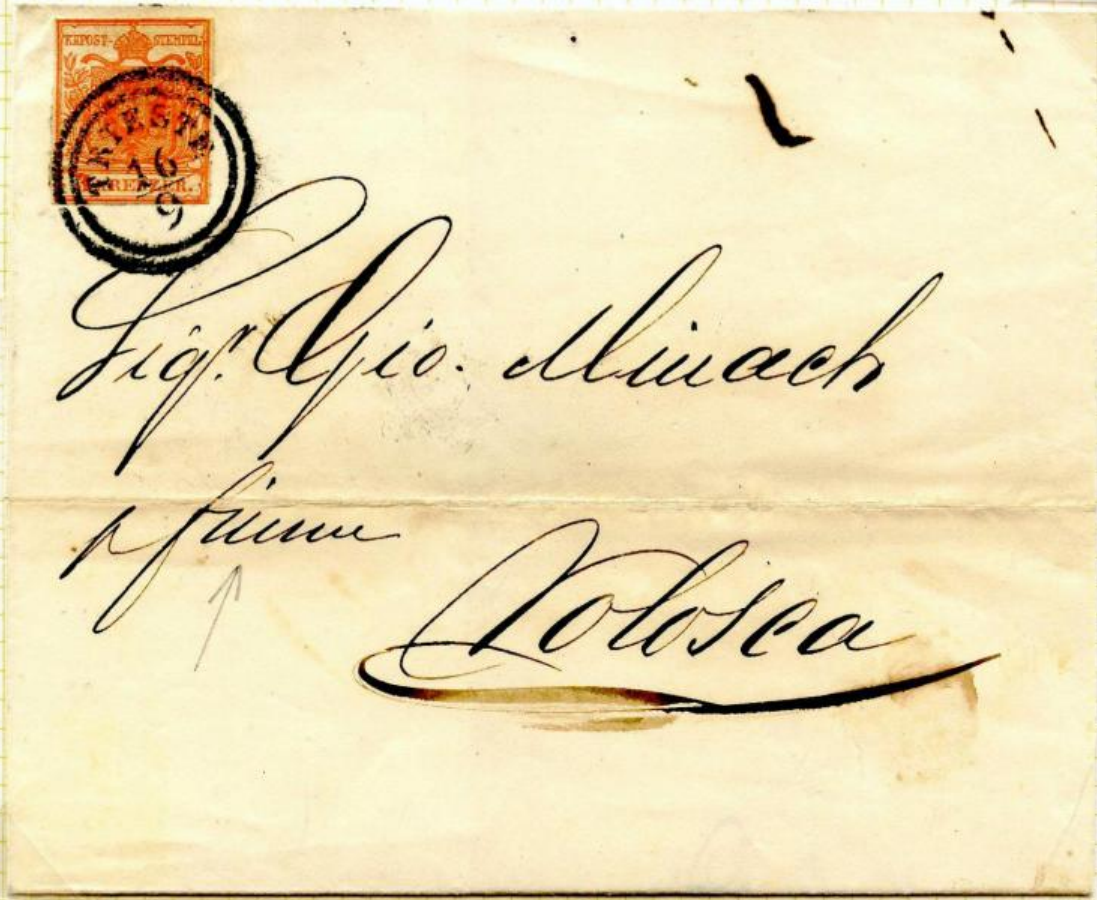 K.K.POST-STEMPEL
TRIESTE
16
9
KREUZER.
Sigr. Gio. Minach
p fiume
Volosca